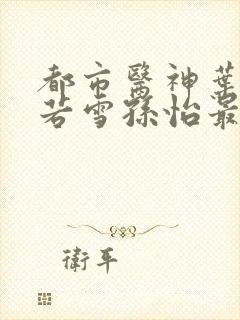 都市醫神葉
若雪孫怡最
衛平